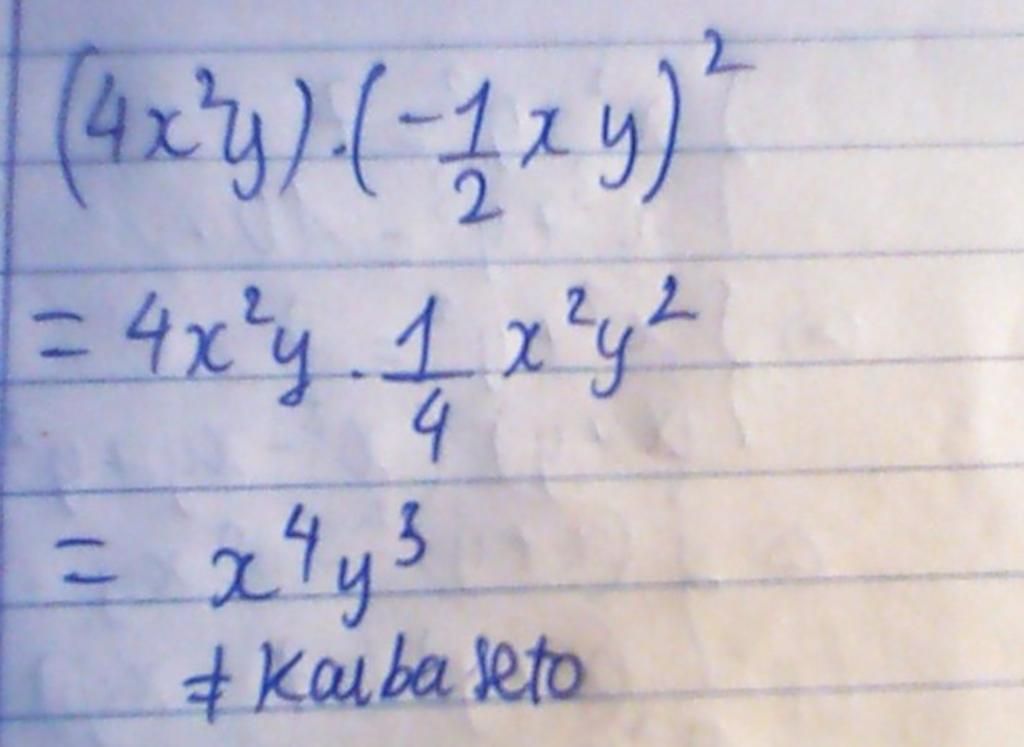 (4x²y).(-1/2 x y)²
= 4x²y . 1/4 x²y²
= x⁴y³
≠ Kaiba seto